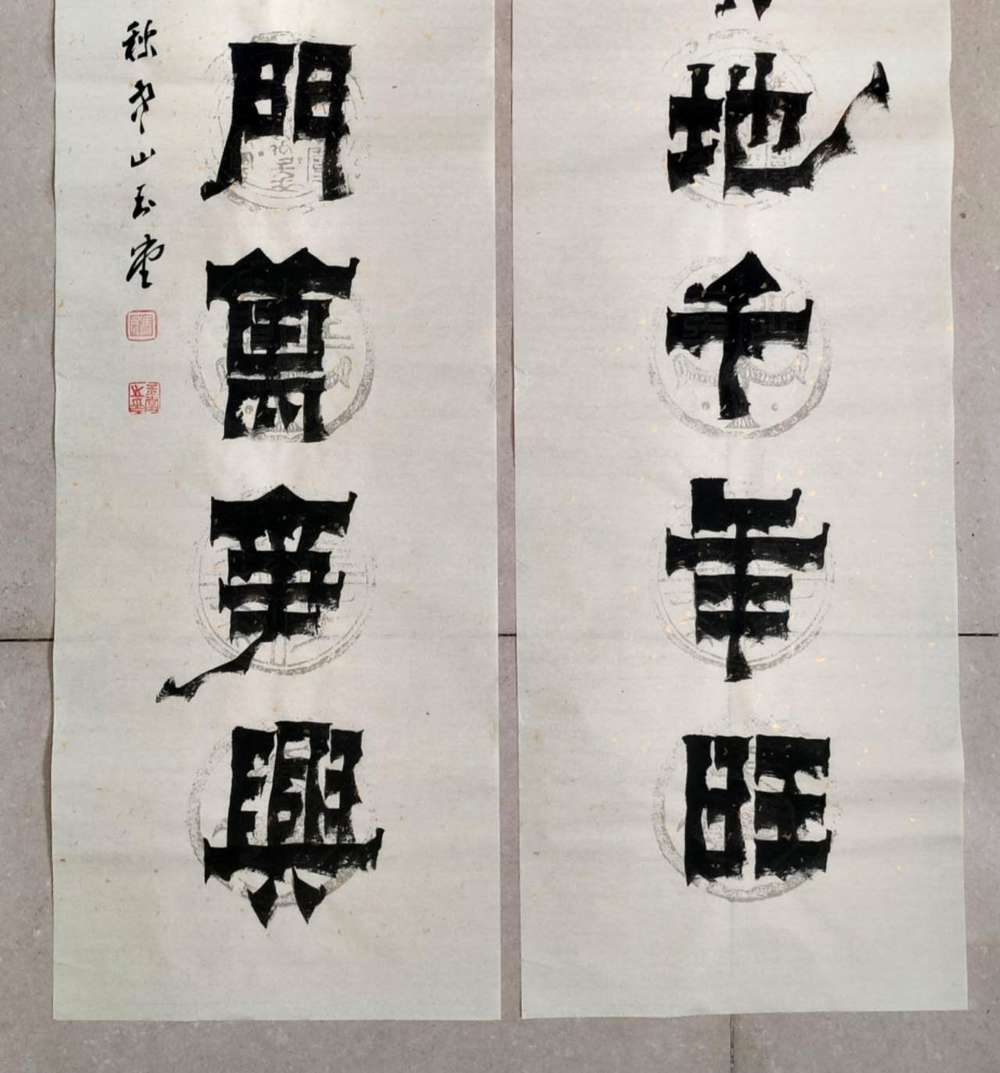 地千年旺
門萬事興
秋山玉堂